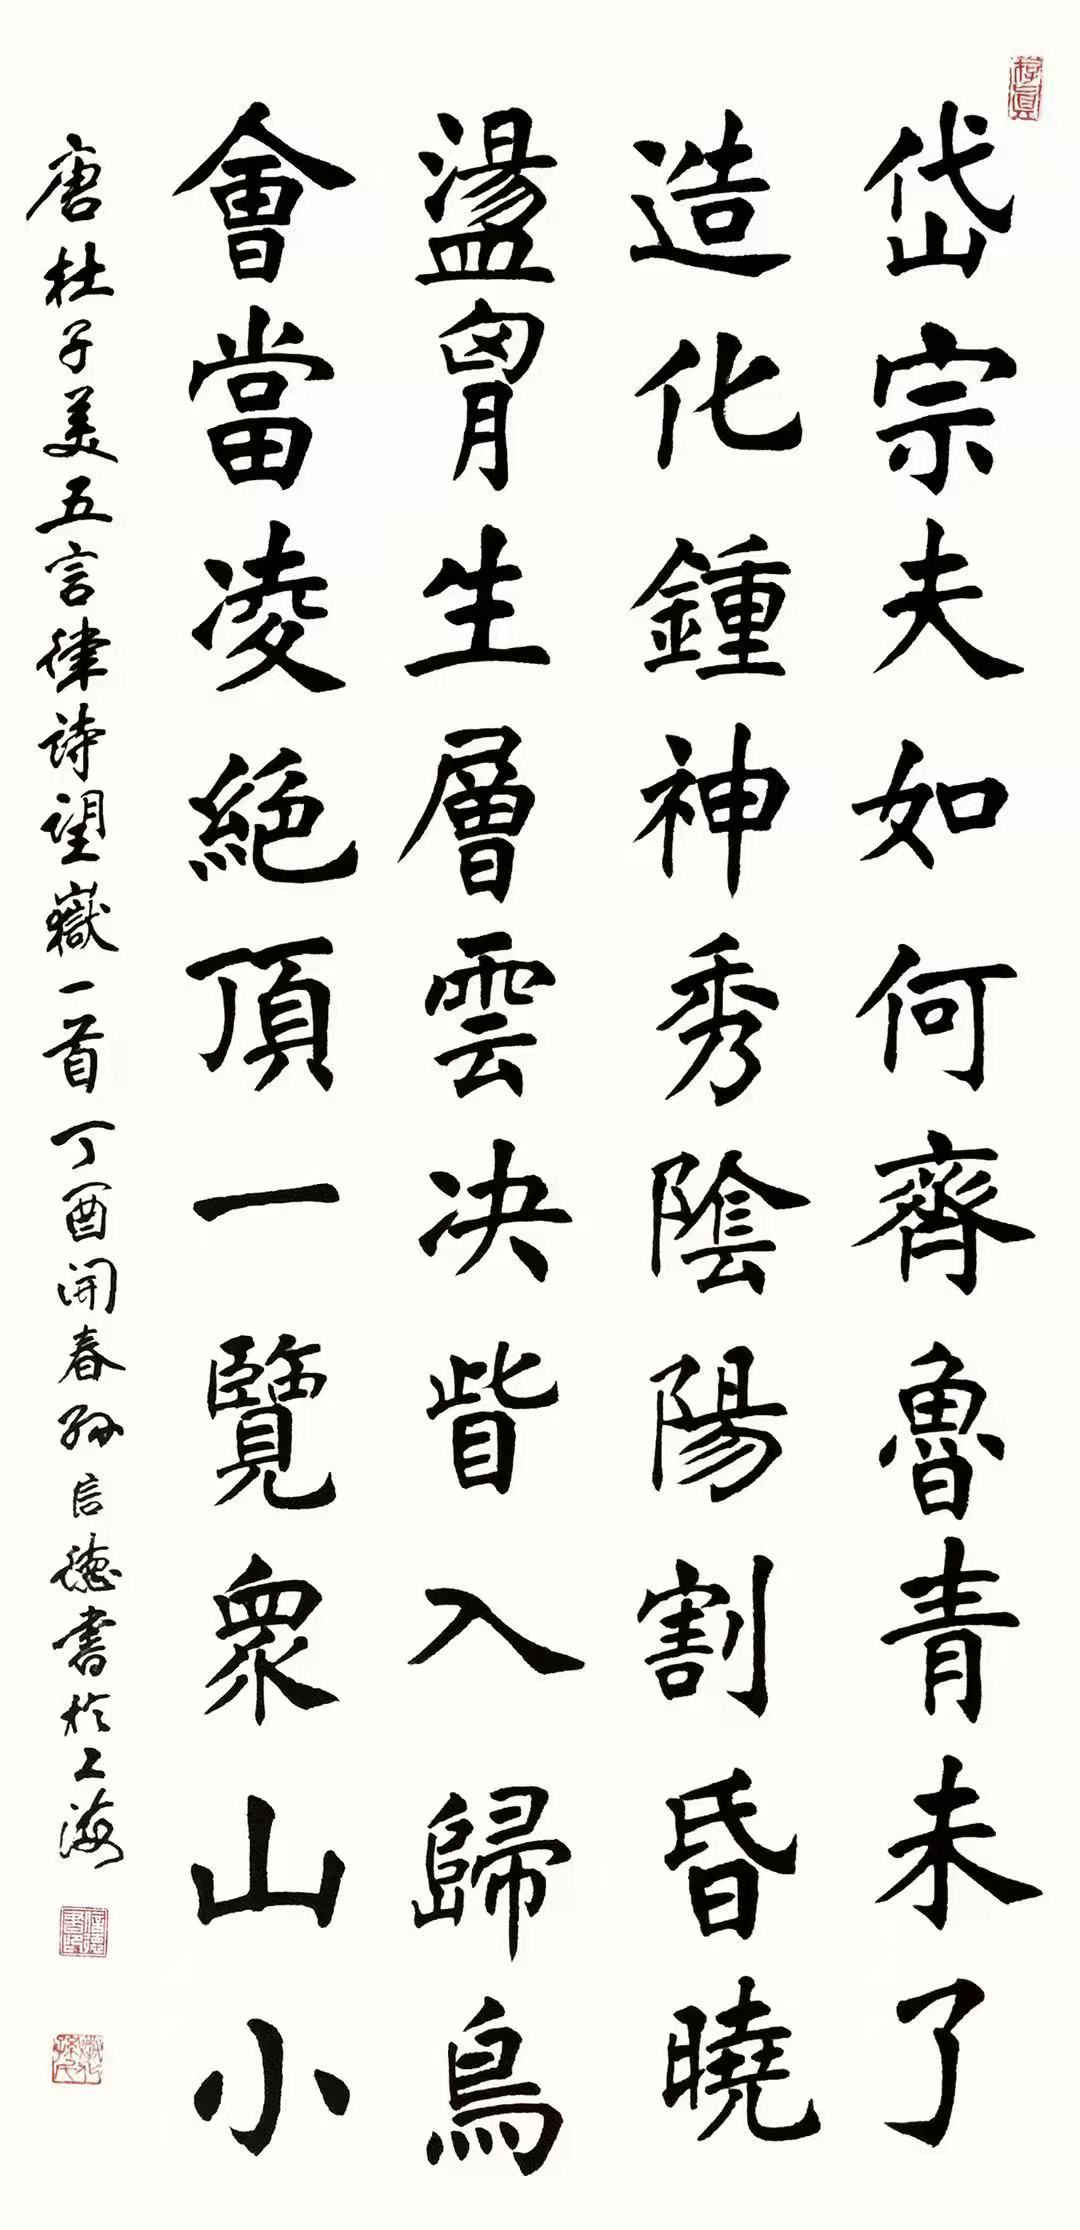 岱宗夫如何齊魯青未了
造化鍾神秀陰陽割昏曉
盪胷生層雲決眥入歸鳥
會當凌絕頂一覽眾山小
唐杜子美五言律詩望嶽一首丁酉開春孫信德書於上海